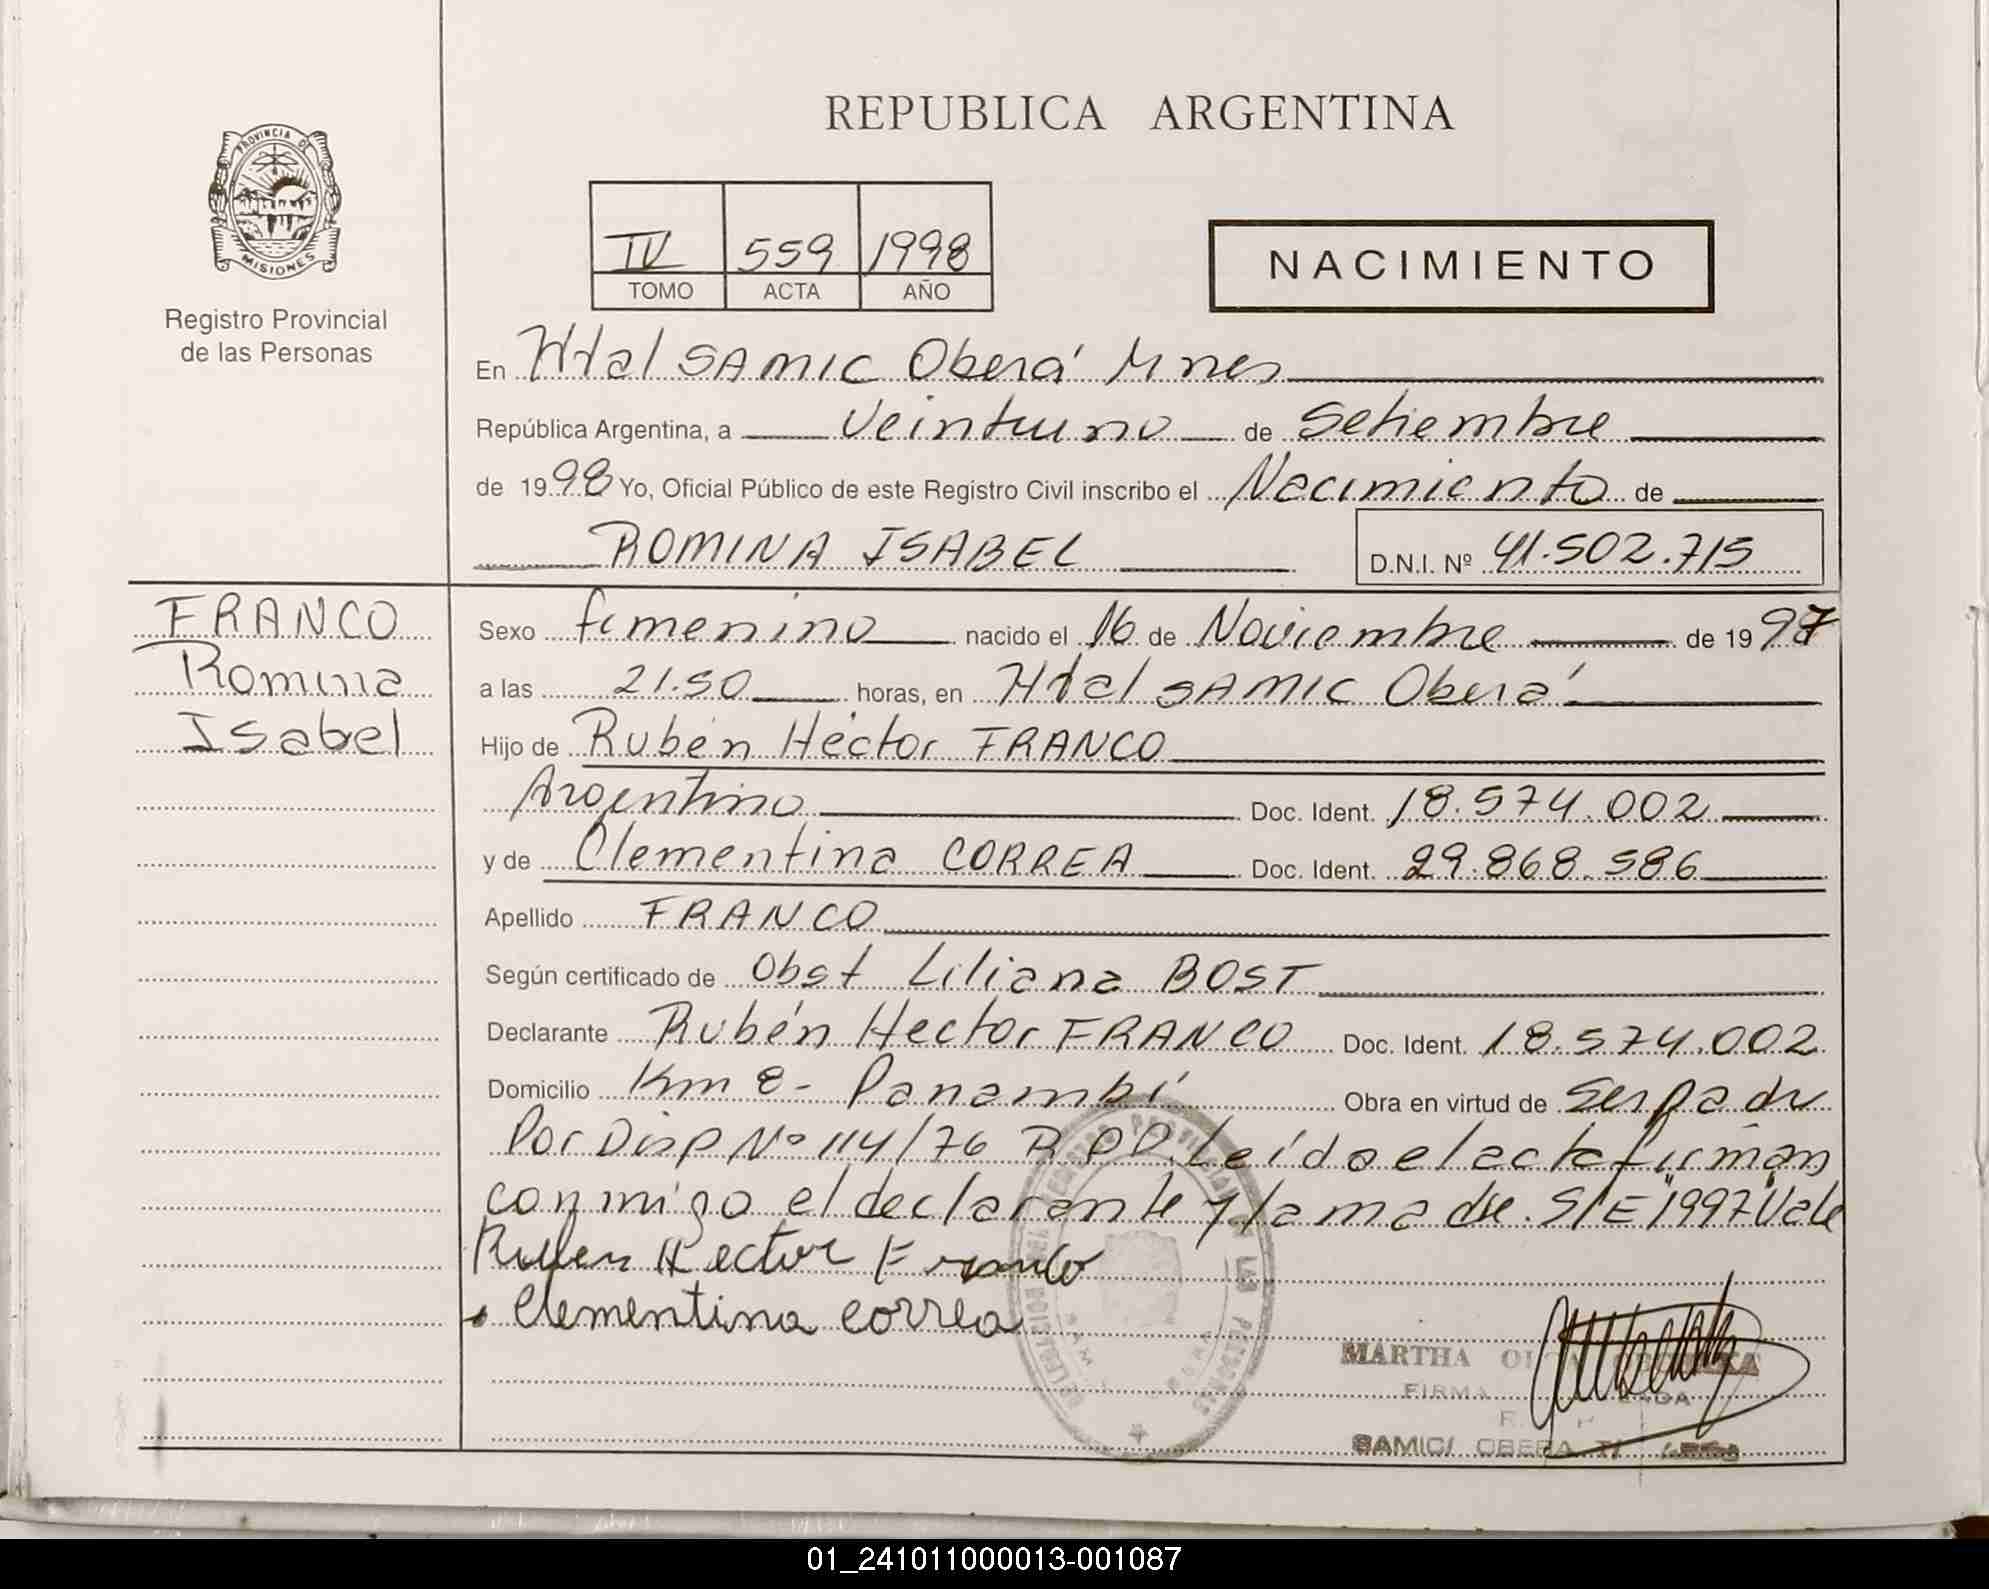 REPUBLICA ARGENTINA
PROVINCIA DE
MISIONES
Registro Provincial
de las Personas
IV 559 1998
TOMO ACTA AÑO
NACIMIENTO
En Htal SAMIC Oberá Mnes
República Argentina, a Veintiuno de Setiembre
de 1998 Yo, Oficial Público de este Registro Civil inscribo el Nacimiento de
ROMINA ISABEL D.N.I. Nº 41.502.715
FRANCO
Romina
Isabel
Sexo femenino nacido el 16 de Noviembre de 1997
a las 21.50 horas, en Htal SAMIC Oberá
Hijo de Rubén Héctor FRANCO
Argentino Doc. Ident. 18.574.002
y de Clementina CORREA Doc. Ident. 29.868.586
Apellido FRANCO
Según certificado de Obst Liliana BOST
Declarante Rubén Hector FRANCO Doc. Ident. 18.574.002
Domicilio Km 8 - Panambí Obra en virtud de Ser padre
Por Disp Nº 114/76 R.P.P. Leída el acta firman
conmigo el declarante y la madre. S/E "1997" Vale
Ruben Hector Franco
Clementina Correa
MARTHA
FIRMA
SAMIC OBERA
01_241011000013-001087